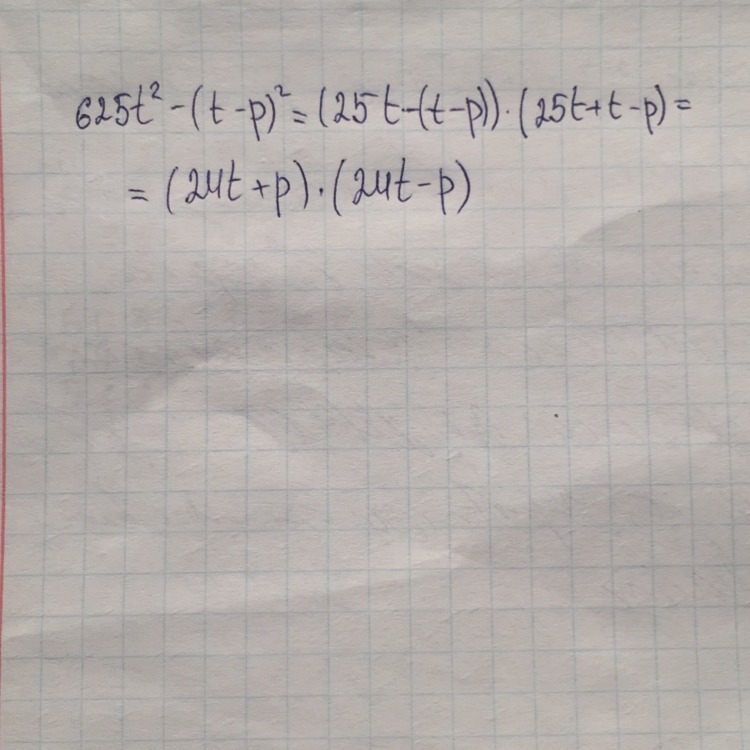 625t² - (t - p)² = (25t - (t - p)) · (25t + t - p) =
= (24t + p) · (24t - p)